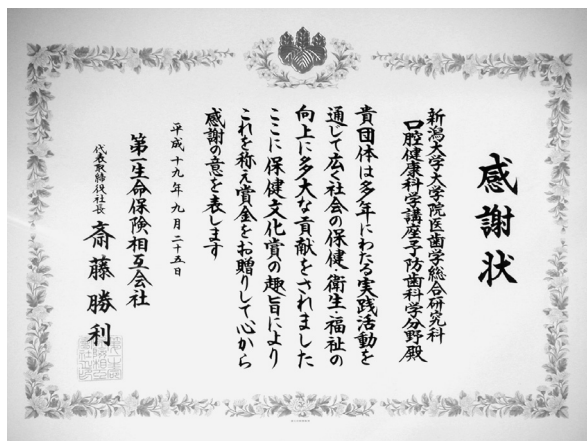 感謝状
新潟大学大学院医歯学総合研究科
口腔健康科学講座予防歯科学分野殿
貴団体は多年にわたる実践活動を
通じて広く社会の保健・衛生・福祉の
向上に多大な貢献をされました
ここに保健文化賞の趣旨により
これを称え賞金をお贈りして心から
感謝の意を表します
平成十九年九月二十五日
第一生命保険相互会社
代表取締役社長 斎藤勝利